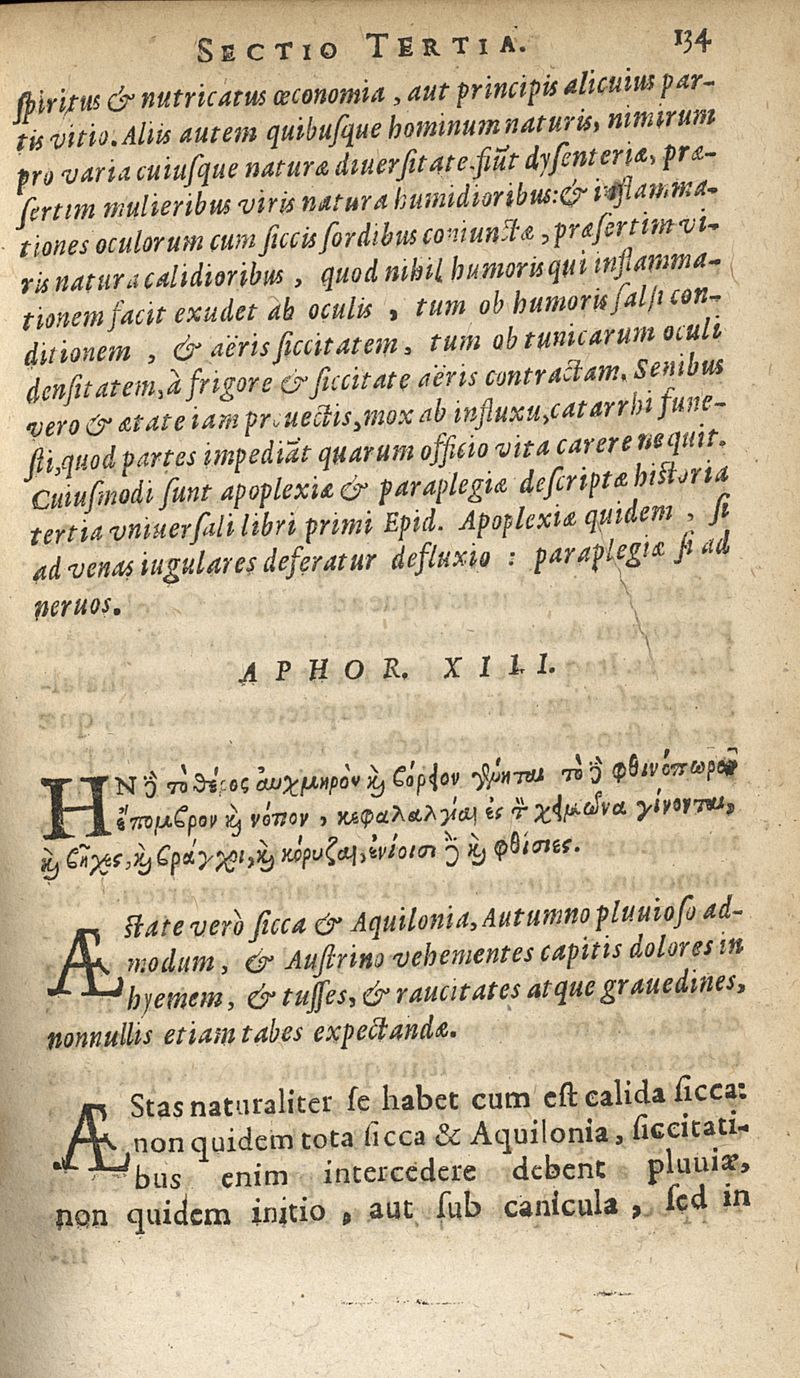 SECTIO TERTIA. 134
ſpiritus & nutricatus œconomia, aut principis alicuius par-
tis vitio. Aliis autem quibuſque hominum naturis, nimirum
pro varia cuiuſque naturæ diuerſitate fiũt dyſenteriæ, præ-
ſertim mulieribus viris natura humidioribus: & inflamma-
tiones oculorum cum ſiccis ſordibus coniunctæ, præſertim vi-
ris natura calidioribus, quod nihil humoris qui inflamma-
tionem facit exudet ab oculis, tum ob humoris ſalſi con-
ditionem, & aëris ſiccitatem, tum ob tunicarum oculi
denſitatem, à frigore & ſiccitate aëris contractam. Senibus
vero & ætate iam prouectis, mox ab influxu, catarrhi fune-
ſti, quod partes impediãt quarum officio vita carere nequit.
Cuiuſmodi ſunt apoplexiæ & paraplegiæ deſcriptæ hiſtoria
tertia vniuerſali libri primi Epid. Apoplexiæ quidem, ſi
ad venas iugulares deferatur defluxio: paraplegiæ ſi ad
neruos.
APHOR. XIII.
ΗΝ δὲ τὸ θέρος αὐχμηρὸν καὶ βόρειον γένηται τὸ δὲ φθινόπωρον
ἔπομβρον καὶ νότιον, κεφαλαλγίαι ἐς τὸν χειμῶνα γίνονται,
καὶ βῆχες, καὶ βράγχοι, καὶ κόρυζαι, ἐνίοισι δὲ καὶ φθίσιες.
Æſtate verò ſicca & Aquilonia, Autumno pluuioſo ad-
modum, & Auſtrino vehementes capitis dolores in
hyemem, & tuſſes, & raucitates atque grauedines,
nonnullis etiam tabes expectandæ.
ÆStas naturaliter ſe habet cum eſt calida ſicca:
non quidem tota ſicca & Aquilonia, ſiccitati-
bus enim intercedere debent pluuiæ,
non quidem initio, aut ſub canicula, ſed in